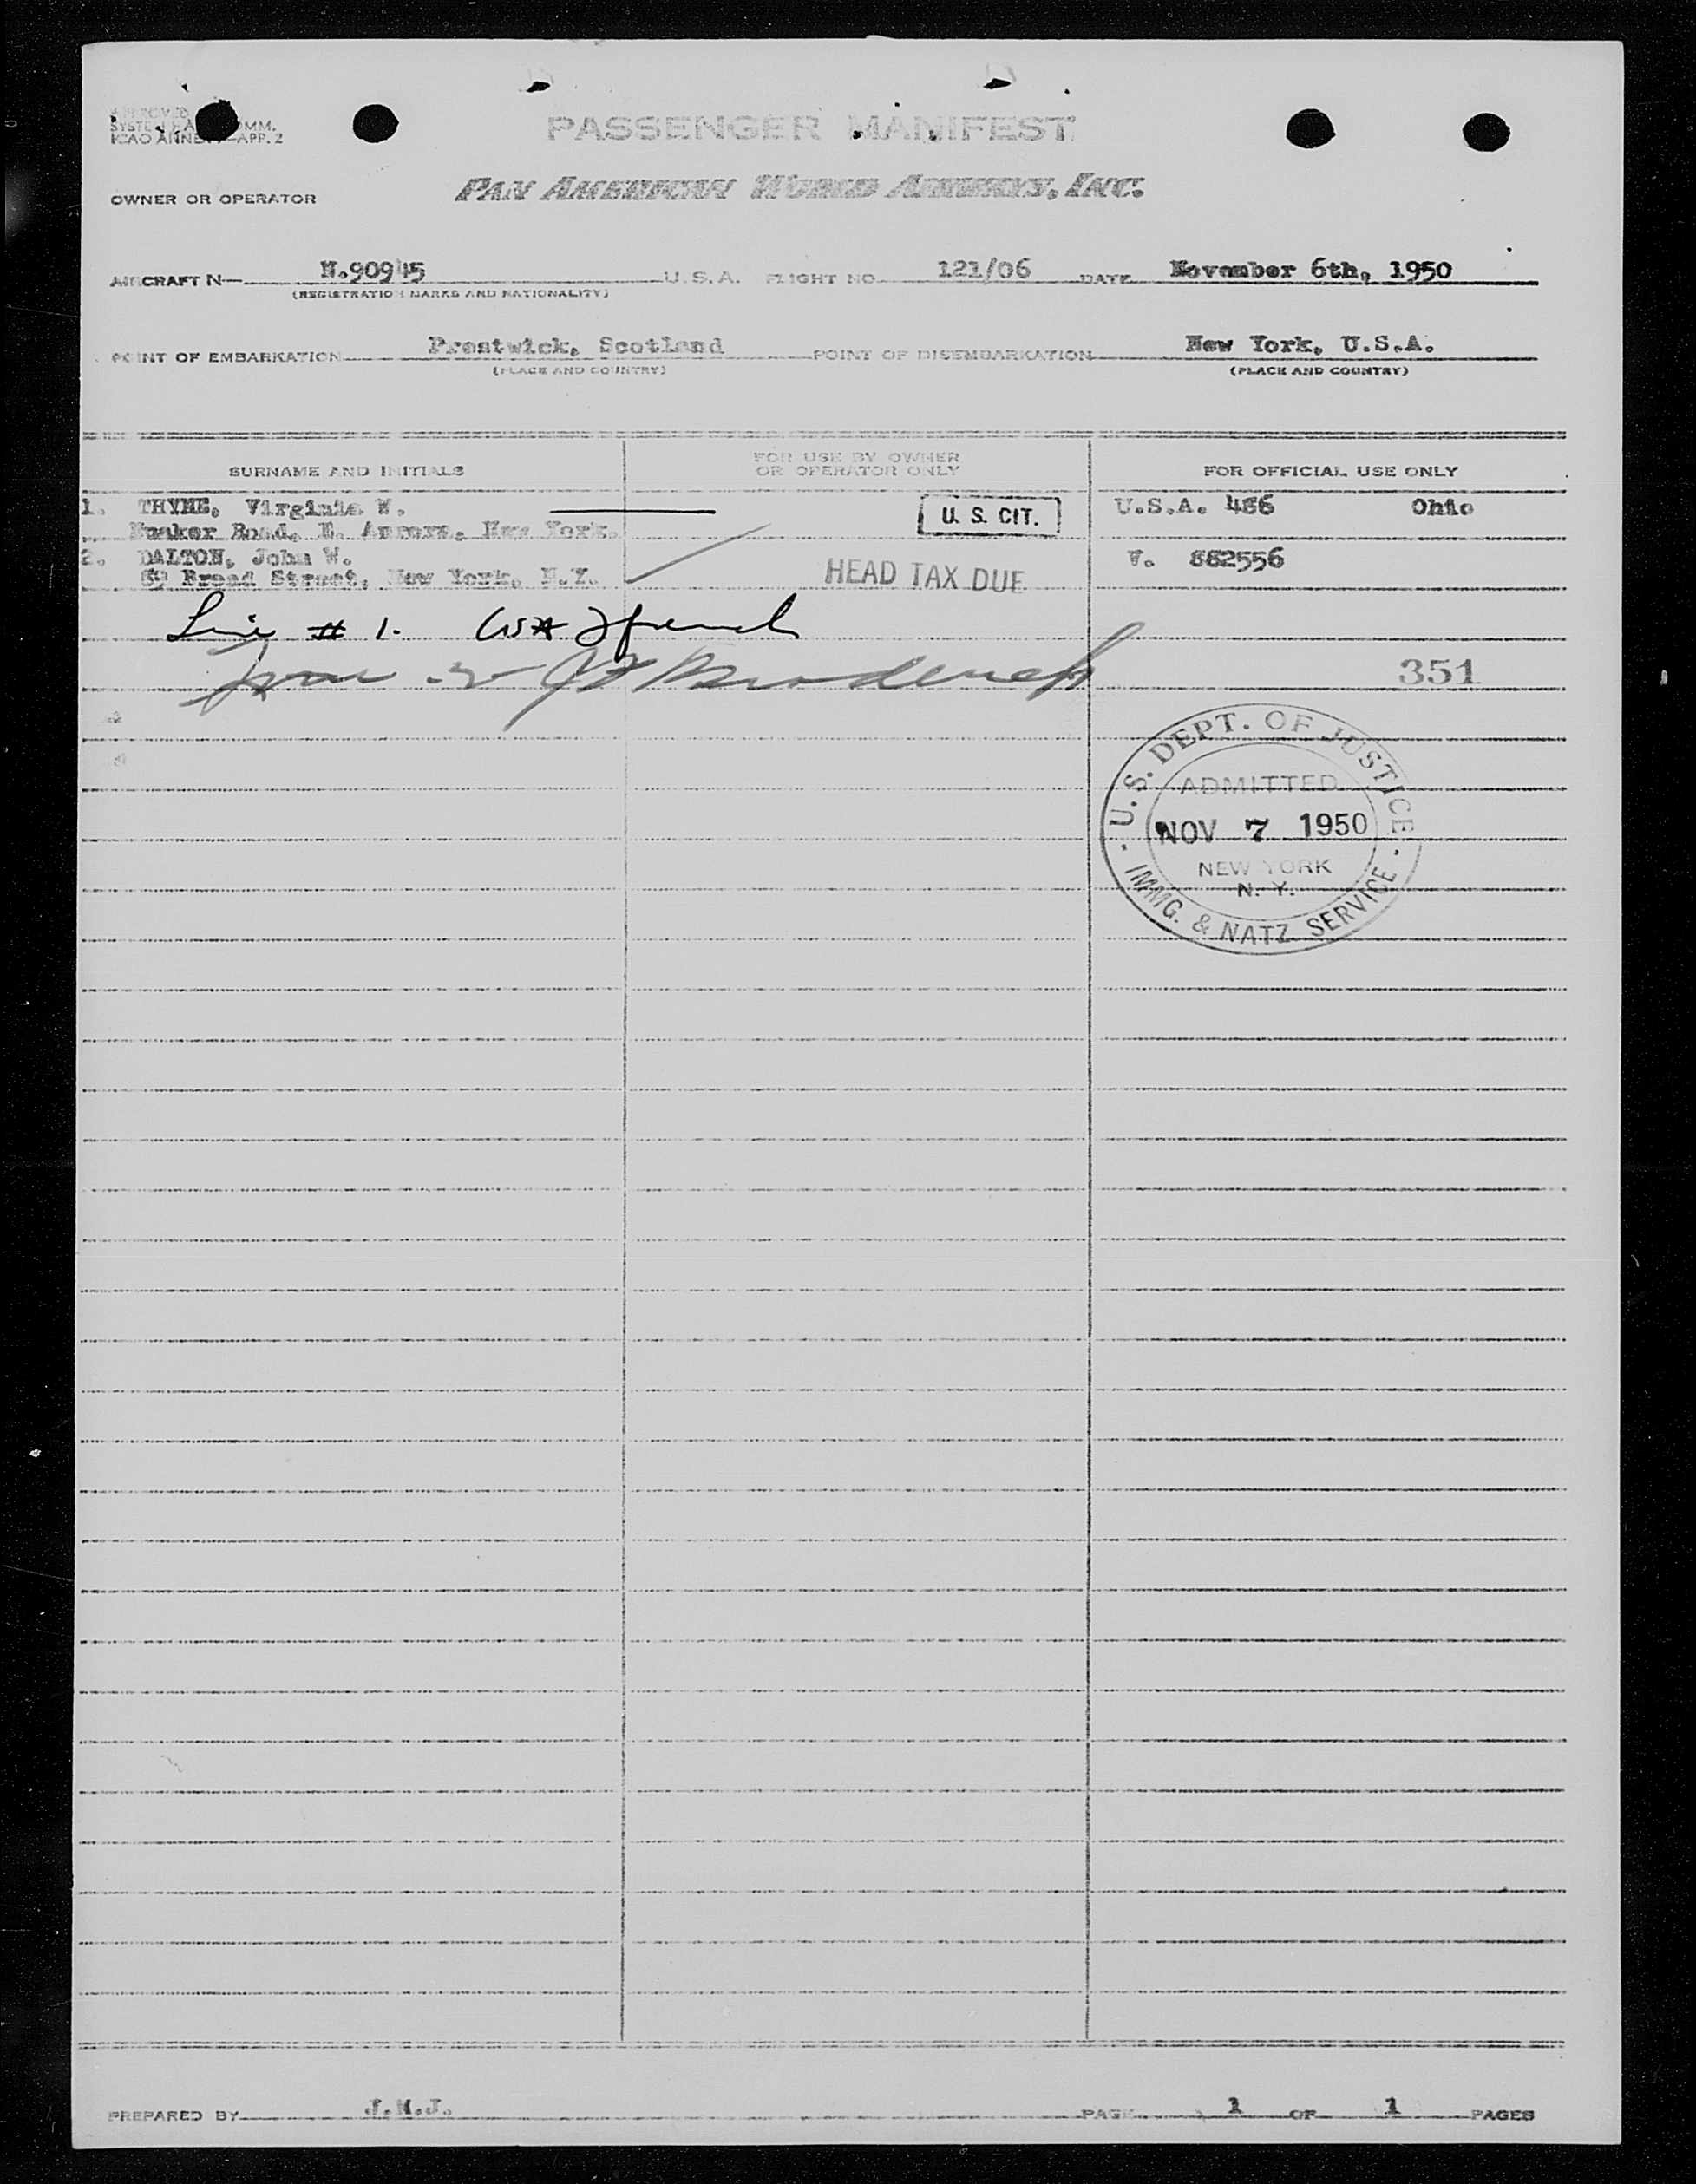 APPROVED
SYSTEM COMM.
ICAO ANNEX APP. 2
PASSENGER MANIFEST
OWNER OR OPERATOR PAN AMERICAN WORLD AIRWAYS, INC.
AIRCRAFT N— N.90945 U.S.A. FLIGHT NO. 121/06 DATE November 6th, 1950
(REGISTRATION MARKS AND NATIONALITY)
POINT OF EMBARKATION Prestwick, Scotland POINT OF DISEMBARKATION New York, U.S.A.
(PLACE AND COUNTRY) (PLACE AND COUNTRY)
SURNAME AND INITIALS FOR USE BY OWNER OR OPERATOR ONLY FOR OFFICIAL USE ONLY
1. Virginia W. U. S. CIT. U.S.A. 486 Ohio
Road, E. Aurora, New York.
2. DALTON, John W. V. 882556
Broad Street, New York, N.Y. HEAD TAX DUE
Line # 1.
351
U.S. DEPT. OF JUSTICE
ADMITTED
NOV 7 1950
NEW YORK
N. Y.
IMMG. & NATZ SERVICE
PREPARED BY PAGE 1 OF 1 PAGES